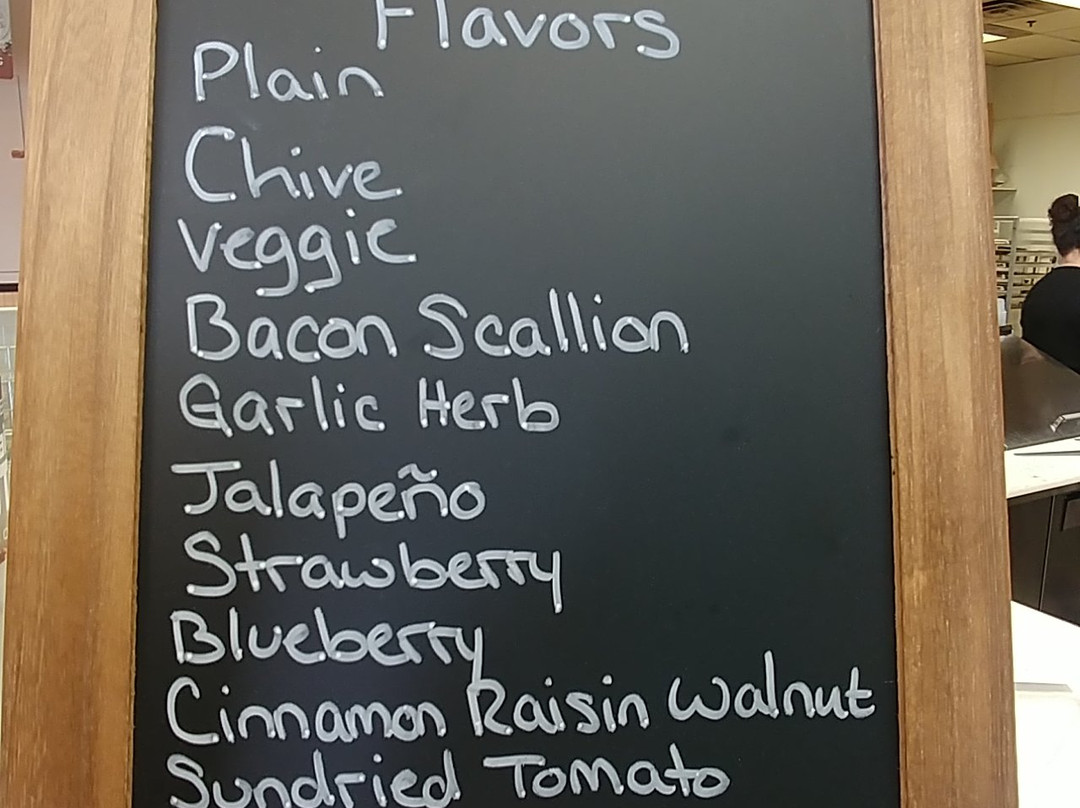 Flavors
Plain
Chive
Veggie
Bacon Scallion
Garlic Herb
Jalapeño
Strawberry
Blueberry
Cinnamon Raisin Walnut
Sundried Tomato